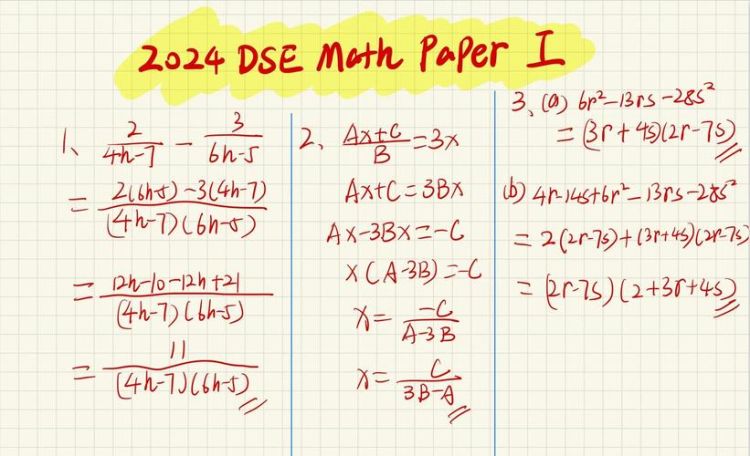 2024 DSE Math Paper I
1、 2/(4h-7) - 3/(6h-5)
= (2(6h-5)-3(4h-7))/((4h-7)(6h-5))
= (12h-10-12h+21)/((4h-7)(6h-5))
= 11/((4h-7)(6h-5))
2、 (Ax+C)/B = 3x
Ax+C=3Bx
Ax-3Bx=-C
x(A-3B)=-C
x= -C/(A-3B)
x= C/(3B-A)
3、(a) 6r²-13rs-28s²
= (3r+4s)(2r-7s)
(b) 4r-14s+6r²-13rs-28s²
= 2(2r-7s)+(3r+4s)(2r-7s)
= (2r-7s)(2+3r+4s)